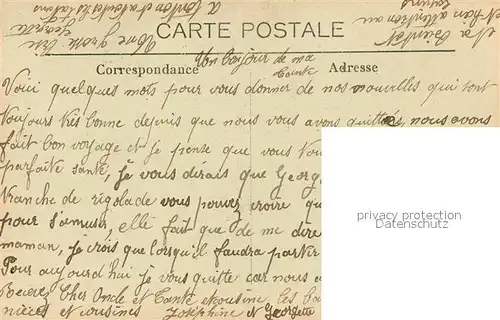 CARTE POSTALE
Correspondance
Adresse
Un bonjour de ma
tante
Voici quelques mots pour vous donner de nos nouvelles qui sont
toujours très bonne depuis que nous vous avons quittés, nous avons
fait bon voyage et je pense que vous
parfaite santé, je vous dirais que Georg
tranche de rigolade vous pouvez croire qu
pour s'amuser, elle fait que de me dire
maman, je crois que lorsqu'il faudra partir
Pour aujourd'hui je vous quitte car nous
Recevez Cher Oncle et Tante et cousine les
nièces et cousines Joséphine et Georgette
privacy protection
Datenschutz